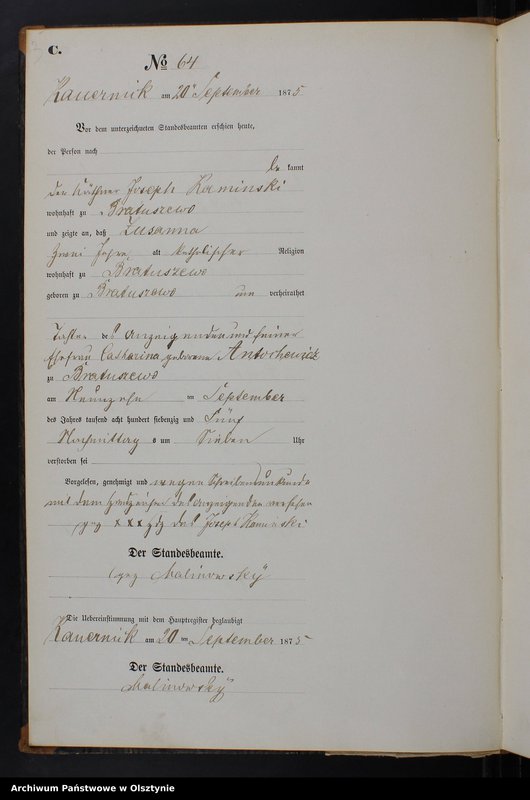 C.
No 64
Kauernik am 20 September 1875
Vor dem unterzeichneten Standesbeamten erschien heute,
der Person nach
be kannt
den Käthner Joseph Kaminski
wohnhaft zu Bratuszewo
und zeigte an, daß Susanna
zwei Jahre alt katholischer Religion
wohnhaft zu Bratuszewo
geboren zu Bratuszewo un verheirathet
Tochter des Anzeigenden und seiner
Ehefrau Catharina geborene Antochewicz
zu Bratuszewo
am Neunzehn ten September
des Jahres tausend acht hundert siebenzig und Fünf
Nachmittag s um Sieben Uhr
verstorben sei
Vorgelesen, genehmigt und wegen Schreibensunkunde
mit dem Handzeichen des Anzeigenden versehen
gez xxx des Joseph Kaminski
Der Standesbeamte.
gez Malinowsky
Die Uebereinstimmung mit dem Hauptregister beglaubigt
Kauernik am 20 ten September 1875
Der Standesbeamte.
Malinowsky
Archiwum Państwowe w Olsztynie